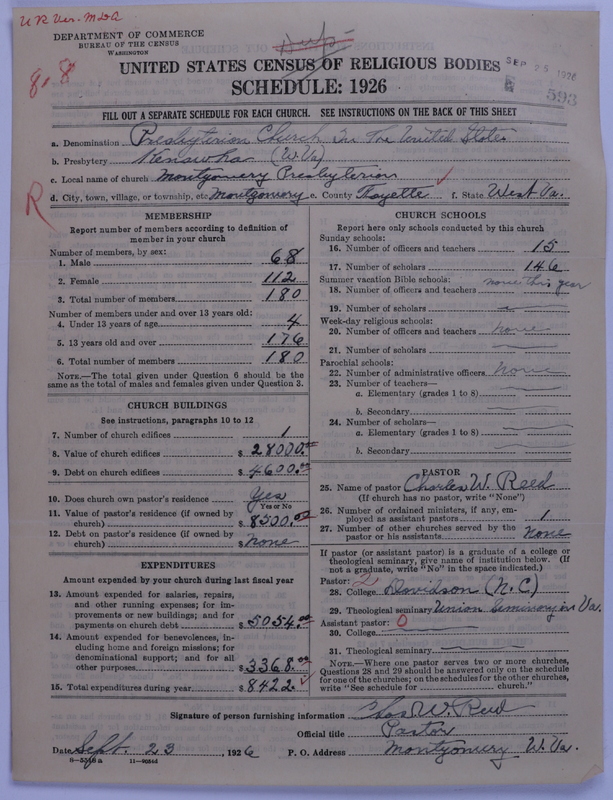 U R Ver. MDA
DEPARTMENT OF COMMERCE
BUREAU OF THE CENSUS
WASHINGTON
Dup
UNITED STATES CENSUS OF RELIGIOUS BODIES
SEP 25 1926
593
SCHEDULE: 1926
FILL OUT A SEPARATE SCHEDULE FOR EACH CHURCH. SEE INSTRUCTIONS ON THE BACK OF THIS SHEET
a. Denomination Presbyterian Church in The United States
b. Presbytery Kanawha (W. Va)
c. Local name of church Montgomery Presbyterian
d. City, town, village, or township, etc. Montgomery e. County Fayette f. State West Va.
R
MEMBERSHIP
Report number of members according to definition of
member in your church
Number of members, by sex:
1. Male 68
2. Female 112
3. Total number of members 180
Number of members under and over 13 years old:
4. Under 13 years of age 4
5. 13 years old and over 176
6. Total number of members 180
NOTE.—The total given under Question 6 should be the
same as the total of males and females given under Question 3.
CHURCH BUILDINGS
See instructions, paragraphs 10 to 12
7. Number of church edifices 1
8. Value of church edifices $ 28000.00
9. Debt on church edifices $ 4600.00
10. Does church own pastor's residence Yes
Yes or No
11. Value of pastor's residence (if owned by
church) $ 8500.00
12. Debt on pastor's residence (if owned by
church) $ none
EXPENDITURES
Amount expended by your church during last fiscal year
13. Amount expended for salaries, repairs,
and other running expenses; for im-
provements or new buildings; and for
payments on church debt $ 5054.00
14. Amount expended for benevolences, in-
cluding home and foreign missions; for
denominational support; and for all
other purposes $ 3368.00
15. Total expenditures during year $ 8422.
CHURCH SCHOOLS
Report here only schools conducted by this church
Sunday schools:
16. Number of officers and teachers 15
17. Number of scholars 146
Summer vacation Bible schools:
18. Number of officers and teachers none this year
19. Number of scholars
Week-day religious schools:
20. Number of officers and teachers none
21. Number of scholars
Parochial schools:
22. Number of administrative officers none
23. Number of teachers—
a. Elementary (grades 1 to 8)
b. Secondary
24. Number of scholars—
a. Elementary (grades 1 to 8)
b. Secondary
PASTOR
25. Name of pastor Charles W. Reed
(If church has no pastor, write "None")
26. Number of ordained ministers, if any, em-
ployed as assistant pastors 1
27. Number of other churches served by the
pastor or his assistants none
If pastor (or assistant pastor) is a graduate of a college or
theological seminary, give name of institution below. (If
not a graduate, write "No" in the space indicated.)
Pastor: 2
28. College Davidson (N.C)
29. Theological seminary Union Seminary in Va.
Assistant pastor: 0
30. College
31. Theological seminary
NOTE.—Where one pastor serves two or more churches,
Questions 28 and 29 should be answered only on the schedule
for one of the churches; on the schedules for the other churches,
write "See schedule for ........ church."
Signature of person furnishing information Chas W. Reed
Official title Pastor
Date Sept. 23, 1926 P. O. Address Montgomery W. Va.
8—5548a 11—9054d